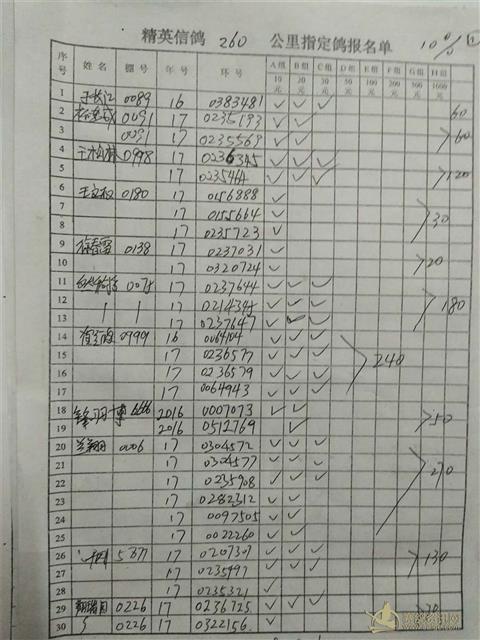 精英信鸽 260 公里指定鸽报名单 10%
序号 姓名 棚号 年号 环号 A组 B组 C组 D组 E组 F组 G组 H组
10元 20元 30元 50元 100元 200元 500元 1000元
1 于长江 0089 16 0383481 ✓ ✓ ✓ 60
2 0091 17 0235193 ✓ ✓
3 0091 17 0235569 ✓ ✓ 60
4 0998 17 0236345 ✓ ✓ ✓
5 17 0235464 ✓ ✓ ✓ 120
6 0180 17 0156888 ✓
7 17 0155664 ✓ 30
8 17 0235723 ✓
9 0138 17 0237031 ✓
10 17 0320724 ✓ 20
11 0075 17 0237644 ✓ ✓ ✓
12 17 0214344 ✓ ✓ ✓ 180
13 17 0237647 ✓ ✓ ✓
14 0999 16 0064104 ✓ ✓ ✓
15 17 0236577 ✓ ✓ ✓ 240
16 17 0236579 ✓ ✓ ✓
17 17 0064943 ✓ ✓ ✓
18 锋羽博 666 2016 0007073 ✓ ✓
19 2016 0512769 ✓ 50
20 兰翔 0006 17 0304572 ✓ ✓ ✓
21 17 0304577 ✓ ✓ ✓ 270
22 17 0235908 ✓ ✓ ✓
23 17 0282312 ✓ ✓
24 17 0097505 ✓ ✓
25 17 0022260 ✓ ✓
26 5677 17 0207307 ✓ ✓ ✓ 130
27 17 0235997 ✓ ✓ ✓
28 17 0235321 ✓
29 0226 17 0236725 ✓ ✓ ✓
30 0226 17 0322156 ✓